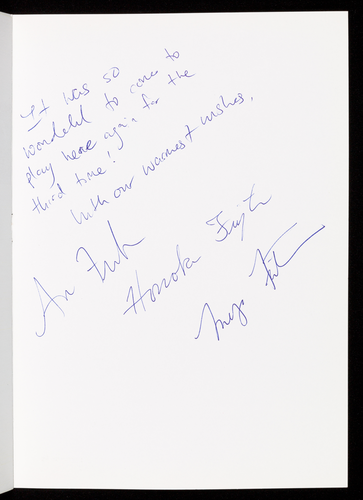 It was so
wonderful to come to
play here again for the
third time!
With our warmest wishes,
Honoka Fujita